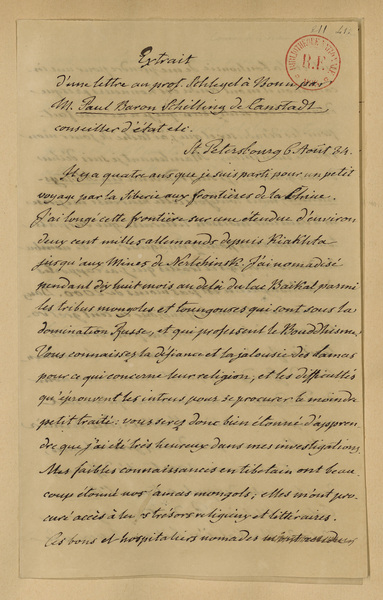 Extrait
d'une lettre au prof. Schlegel à Bonn par
M. Paul Baron Schilling de Canstadt,
conseiller d'état etc.
St. Petersbourg 6 Août 34.
Il y a quatre ans que je suis parti pour un petit
voyage par la Siberie aux frontières de la Chine.
J'ai longé cette frontière sur une étendue d'environ
deux cent milles allemands depuis Kiakhta
jusqu'aux Mines de Nertchinsk. J'ai nomadisé
pendant dix huit mois au delà du lac Baïkal parmi
les tribus mongoles et toungouses qui sont sous la
domination Russe, et qui professent le Bouddhisme.
Vous connaissez la défiance et la jalousie des Lamas
pour ce qui concerne leur religion, et les difficultés
qu'éprouvent les intrus pour se procurer le moindre
petit traité: vous serez donc bien étonné d'appren-
dre que j'ai été très heureux dans mes investigations.
Mes faibles connaissances en tibetain ont beau-
coup étonné nos lamas mongols; elles m'ont pro-
curé accès à leurs trésors religieux et littéraires.
Ces bons et hospitaliers nomades m'ont
R.F.